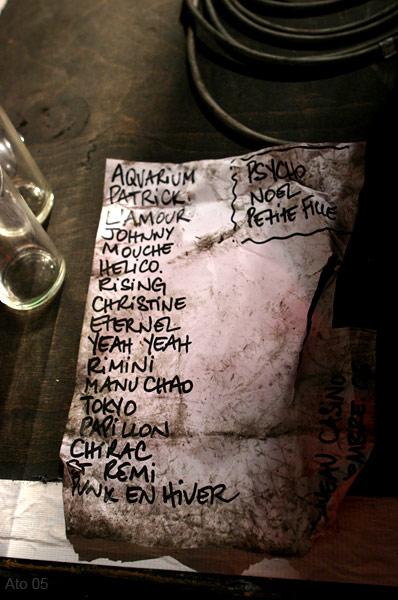 AQUARIUM
PATRICK
L'AMOUR
JOHNNY
MOUCHE
HELICO.
RISING
CHRISTINE
ETERNEL
YEAH YEAH
RIMINI
MANU CHAO
TOKYO
PAPILLON
CHIRAC
ST REMI
PUNK EN HIVER
PSYCHO
NOEL
PETITE FILLE
CASINO
Ato 05